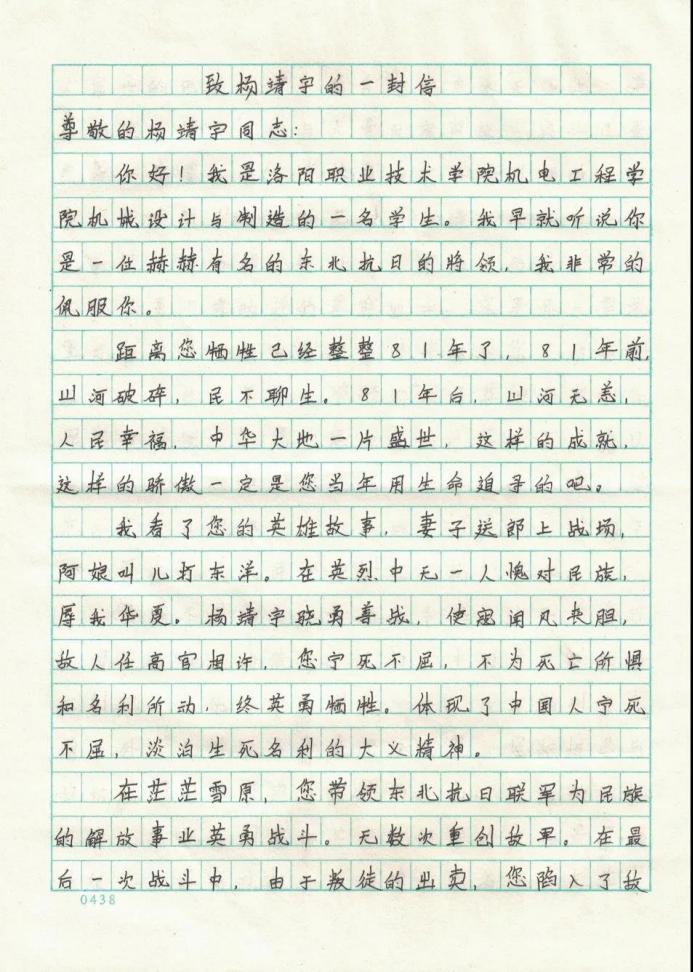 致杨靖宇的一封信
尊敬的杨靖宇同志:
你好!我是洛阳职业技术学院机电工程学
院机械设计与制造的一名学生。我早就听说你
是一位赫赫有名的东北抗日的将领,我非常的
佩服你。
距离您牺牲已经整整81年了,81年前,
山河破碎,民不聊生。81年后,山河无恙,
人民幸福,中华大地一片盛世,这样的成就,
这样的骄傲一定是您当年用生命追寻的吧。
我看了您的英雄故事,妻子送郎上战场,
阿娘叫儿打东洋。在英烈中无一人愧对民族,
辱我华夏。杨靖宇骁勇善战,使寇闻风丧胆,
敌人任高官相许,您宁死不屈,不为死亡所惧
和名利所动,终英勇牺牲。体现了中国人宁死
不屈,淡泊生死名利的大义精神。
在茫茫雪原,您带领东北抗日联军为民族
的解放事业英勇战斗。无数次重创敌军。在最
后一次战斗中,由于叛徒的出卖,您陷入了敌
0438